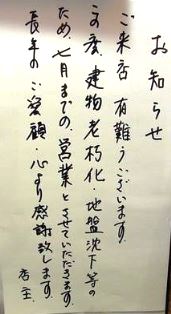 お知らせ
ご来店 有難うございます
この度、建物老朽化・地盤沈下等の
ため、七月までの営業とさせていただきます。
長年のご愛顧・心より感謝致します。
店主